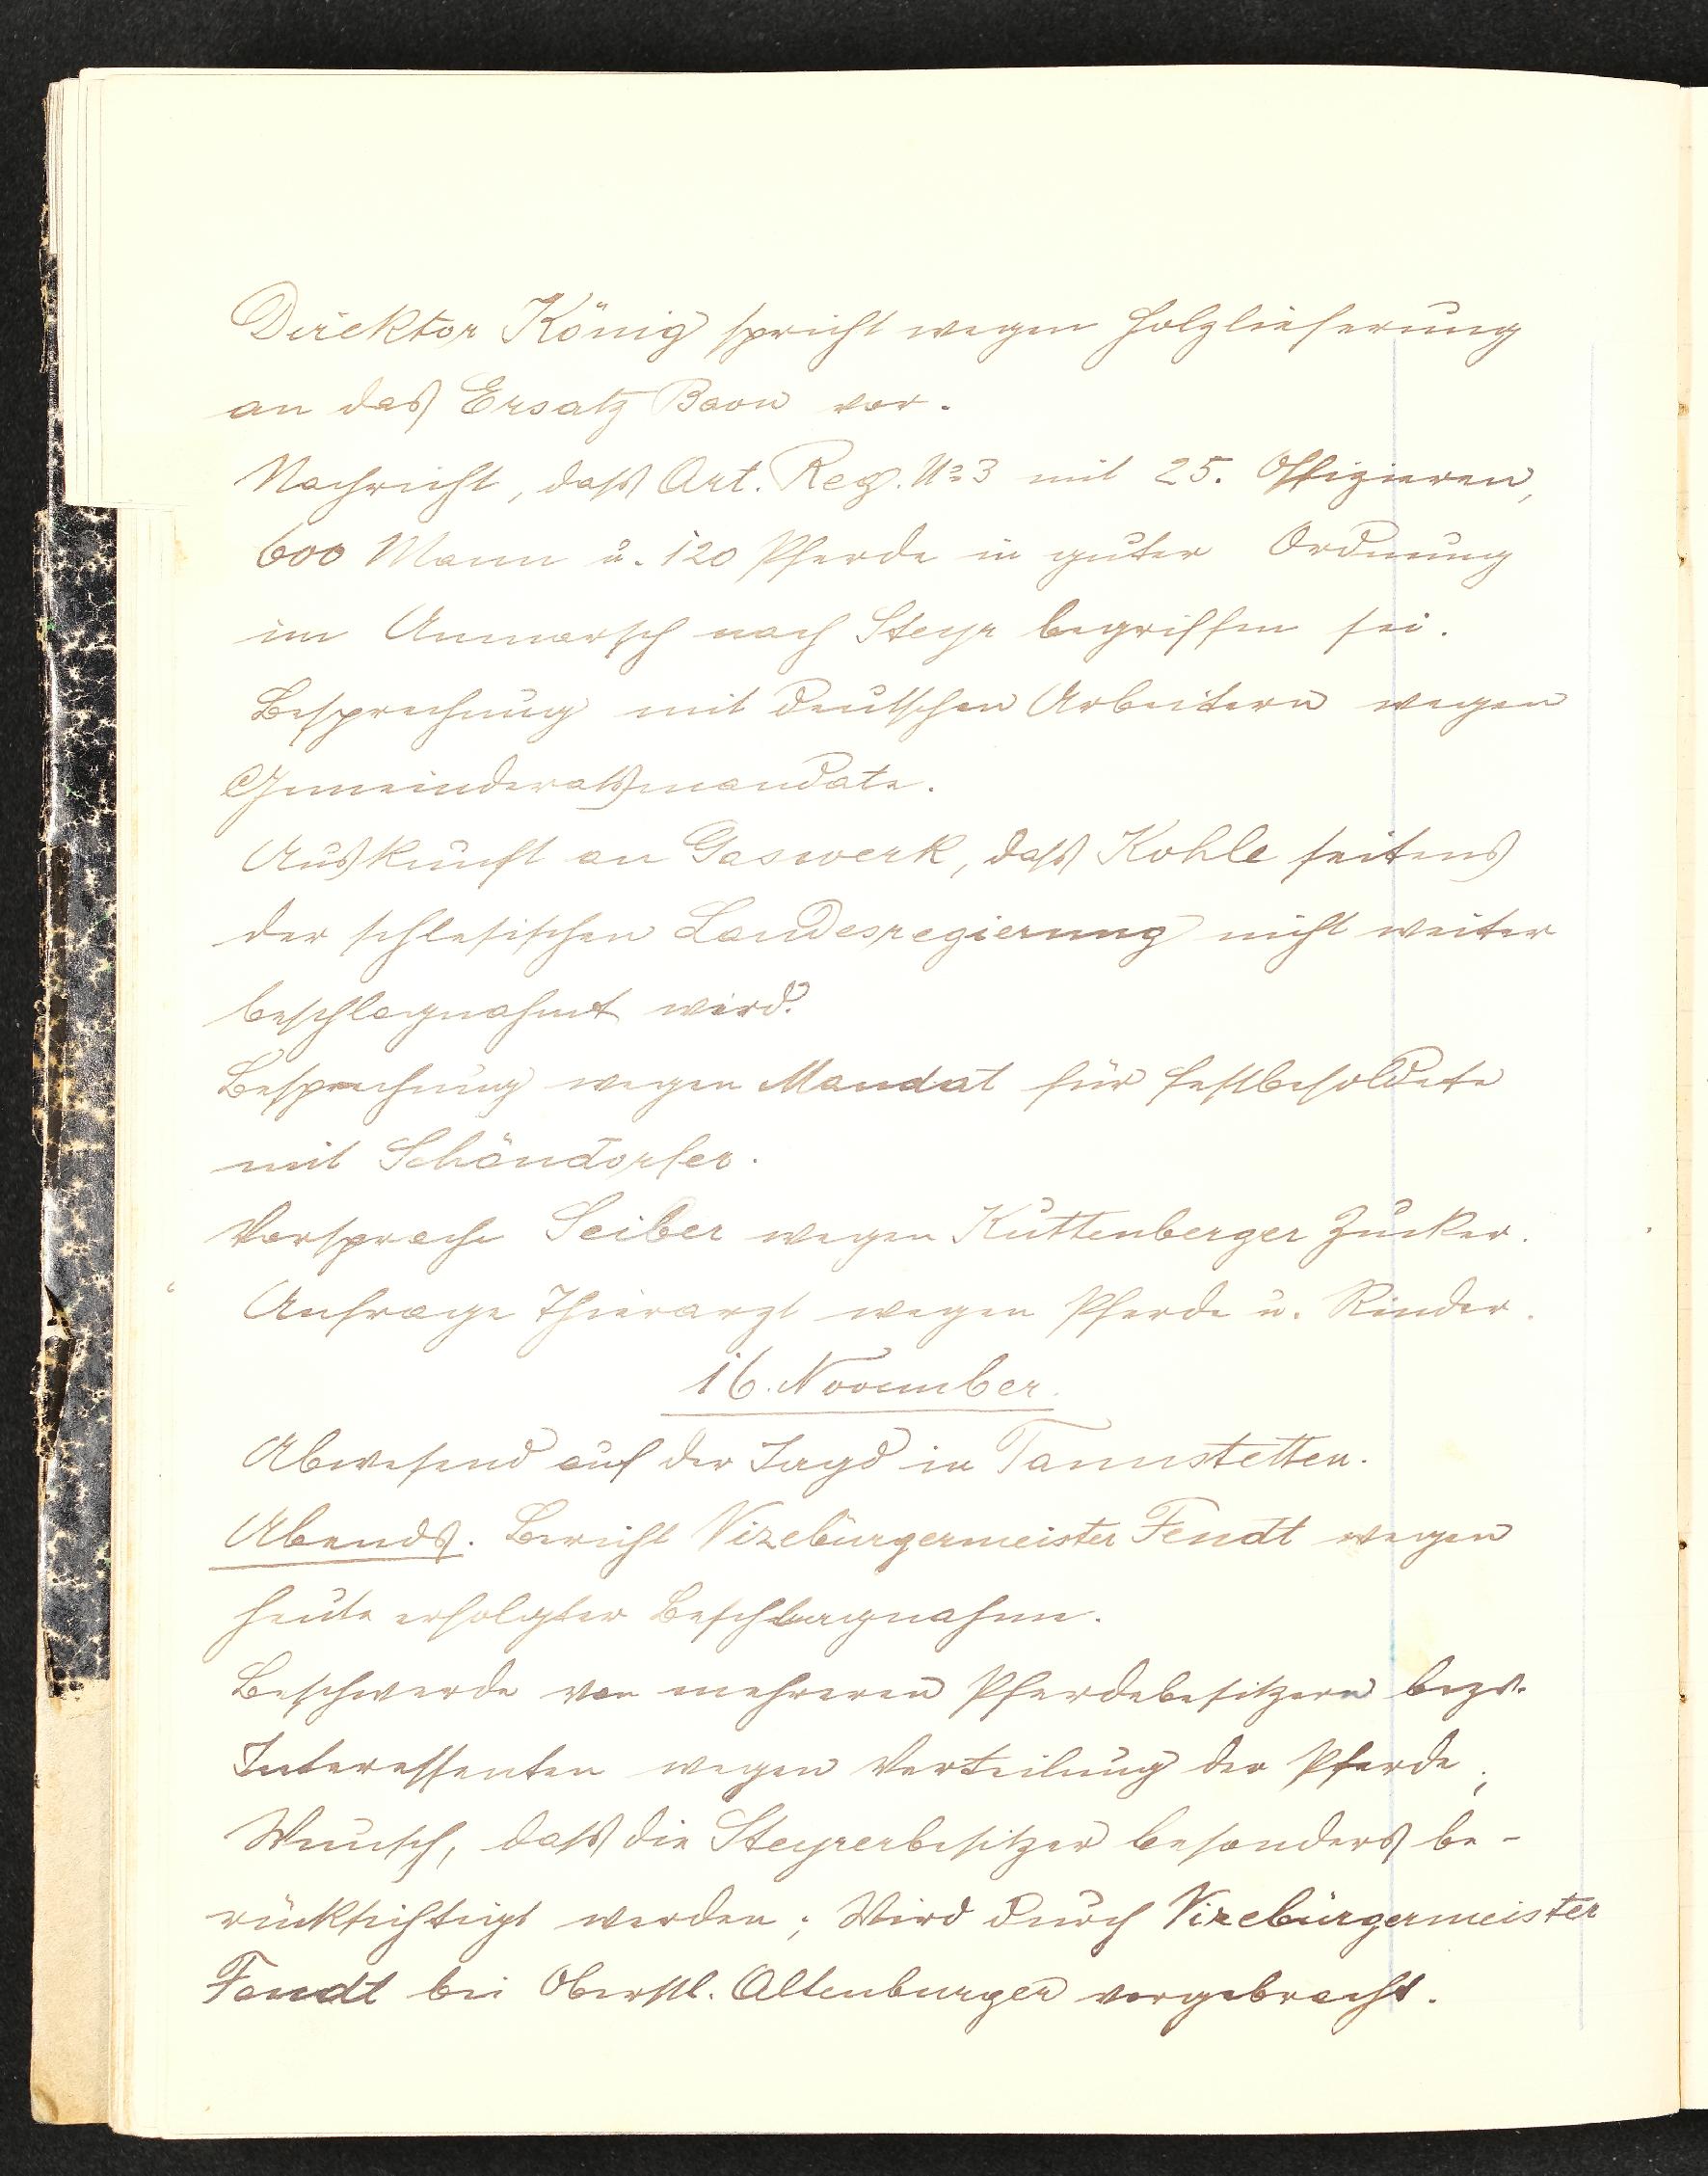 Direktor König spricht wegen Holzlieferung
an das Ersatz Baon vor.
Nachricht, dass Art. Reg. No 3 mit 25. Offizieren,
600 Mann u. 120 Pferde in guter Ordnung
im Anmarsch nach Steyr begriffen sei.
Besprechung mit deutschen Arbeitern wegen
Gemeinderatsmandate.
Auskunft an Gaswerk, dass Kohle seitens
der schlesischen Landesregierung nicht weiter
beschlagnahmt wird.
Besprechung wegen Mandat für Festbesoldete
mit Schöndorfer.
Vorsprache Seiber wegen Kuttenberger Zucker.
Anfrage Thierarzt wegen Pferde u. Rinder.
16. November.
Abwesend auf der Jagd in Tannstetten.
Abends. Bericht Vizebürgermeister Fendt wegen
heute erfolgter Beschlagnahme.
Beschwerde von mehreren Pferdebesitzern bezw.
Interessenten wegen Verteilung der Pferde;
Wunsch, dass die Steyrerbesitzer besonders be-
rücksichtigt werden; Wird durch Vizebürgermeister
Fendt bei Oberstl. Altenburger vorgebracht.